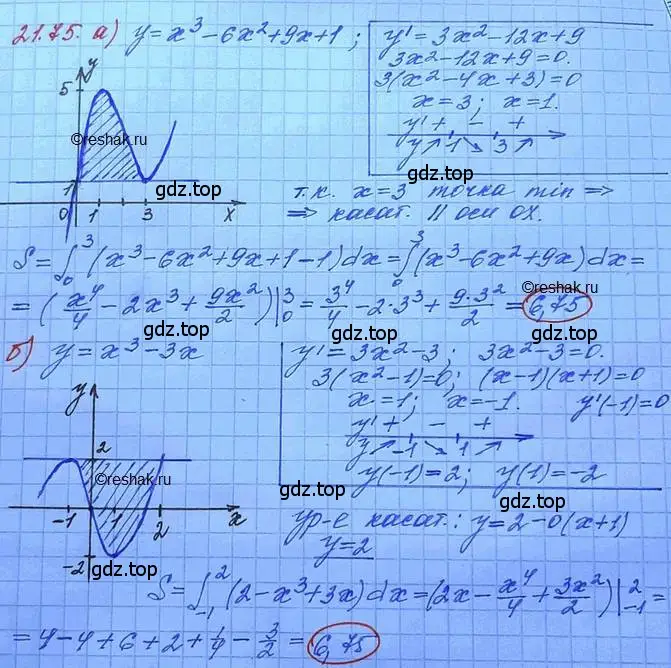 21.75. а) y = x³ - 6x² + 9x + 1 ;
y' = 3x² - 12x + 9
3x² - 12x + 9 = 0.
3(x² - 4x + 3) = 0
x = 3 ; x = 1.
y' + - +
y ↗ 1 ↘ 3 ↗
y
5
1
0 1 3 x
©reshak.ru
gdz.top
gdz.top
т.к. x = 3 точка min ⇒
⇒ касат. || оси ох.
S = ∫₀³ (x³ - 6x² + 9x + 1 - 1) dx = ∫₀³ (x³ - 6x² + 9x) dx =
= (x⁴/4 - 2x³ + 9x²/2) |₀³ = 3⁴/4 - 2·3³ + 9·3²/2 = 6,75
©reshak.ru
gdz.top
gdz.top
б) y = x³ - 3x
y' = 3x² - 3 ; 3x² - 3 = 0.
3(x² - 1) = 0; (x - 1)(x + 1) = 0
x = 1; x = -1. y'(-1) = 0
y' + - +
y ↗ -1 ↘ 1 ↗
y(-1) = 2; y(1) = -2
y
2
-1 1 2 x
-2
©reshak.ru
gdz.top
gdz.top
ур-е касат.: y = 2 - 0(x + 1)
y = 2
S = ∫₋₁² (2 - x³ + 3x) dx = (2x - x⁴/4 + 3x²/2) |₋₁² =
= 4 - 4 + 6 + 2 + 1/4 - 3/2 = 6,75